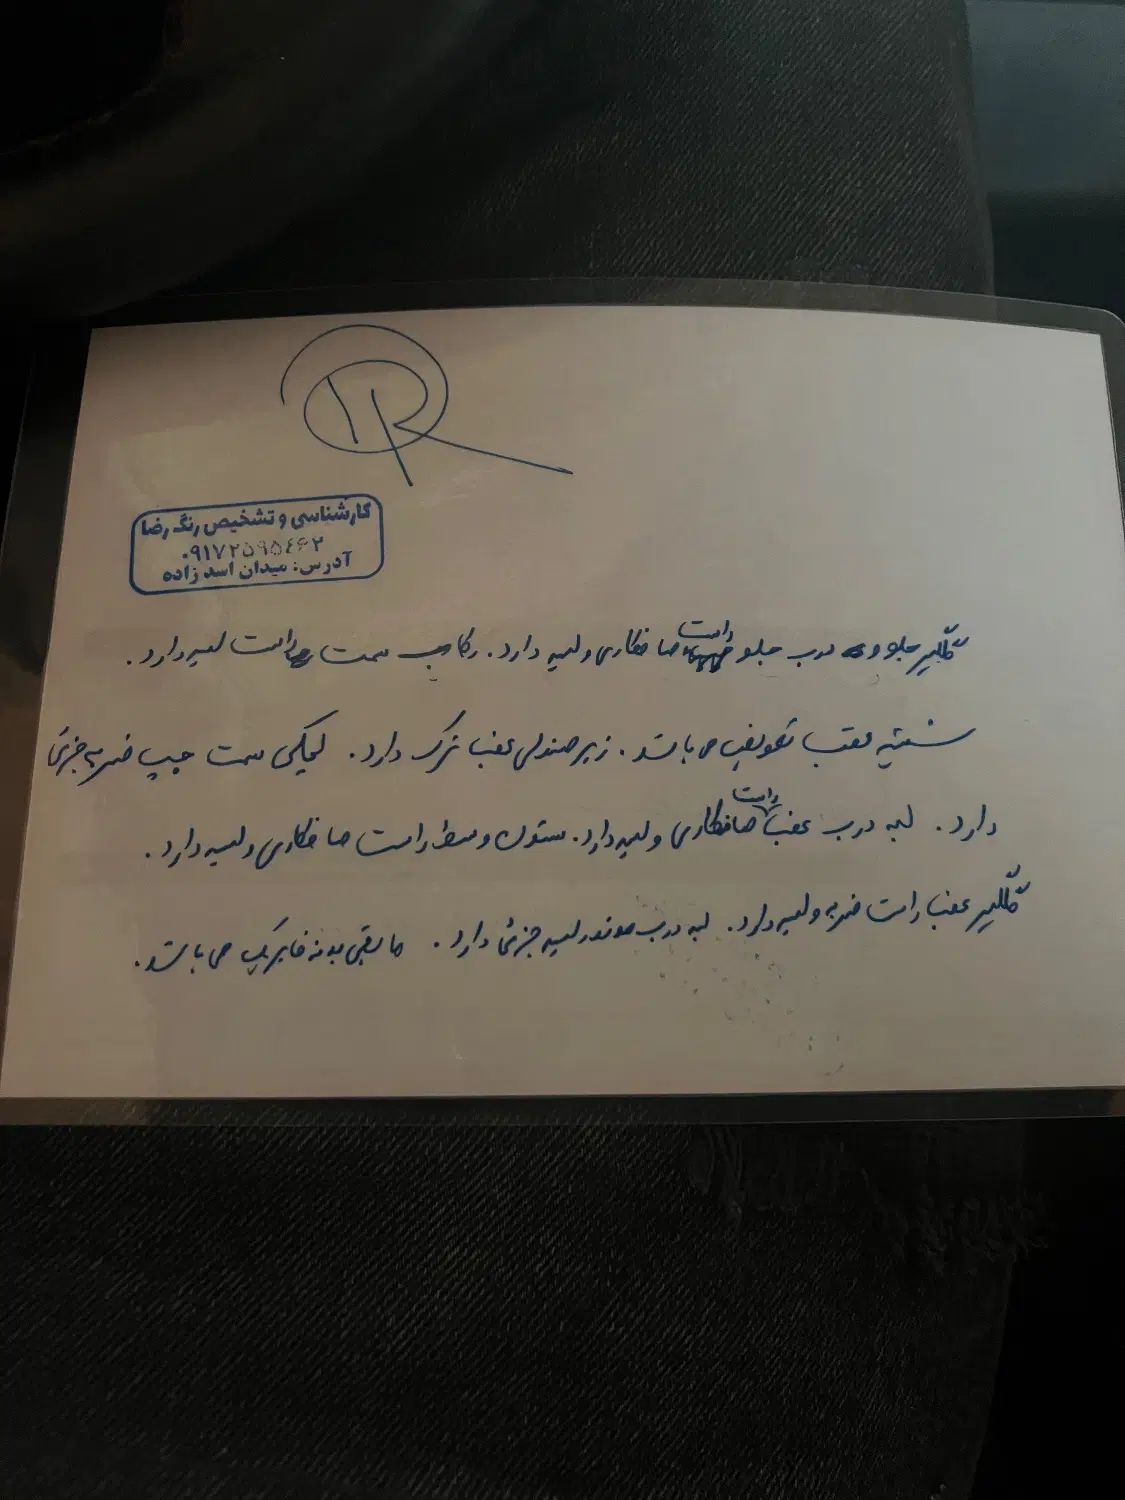 کارشناسی و تشخیص رنگ رضا
۰۹۱۷۲۵۹۵۴۶۲
آدرس: میدان اسد زاده
گلگیر جلو و درب جلو راست صافکاری و لیسه دارد. رکاب سمت راست لیسه دارد.
سینی عقب تعویض می باشد. زیر صندلی عقب ترک دارد. لچکی سمت چپ ضربه جزئی
دارد. لبه درب عقب راست صافکاری و لیسه دارد. ستون وسط راست صافکاری و لیسه دارد.
گلگیر عقب راست ضربه و لیسه دارد. لبه درب موتور لیسه جزئی دارد. مابقی بدنه فابریک می باشد.